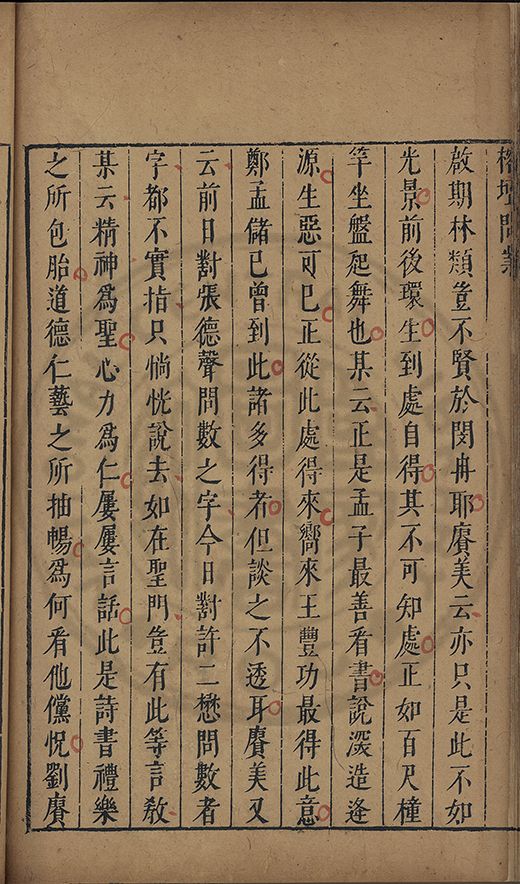 榕壇問業
啟期林類豈不賢於閔冉耶賡美云亦只是此不如
光景前後環生到處自得其不可知處正如百尺橦
竿坐盤起舞也某云正是孟子最善看書說深造逢
源生惡可已正從此處得來嚮來王豐功最得此意
鄭孟儲已曾到此諸多得者但談之不透耳賡美又
云前日對張德聲問數之字今日對許二懋問數者
字都不實指只惝恍說去如在聖門豈有此等言教
某云精神爲聖心力爲仁屢屢言話此是詩書禮樂
之所包胎道德仁藝之所抽暢爲何看他儻怳劉賡